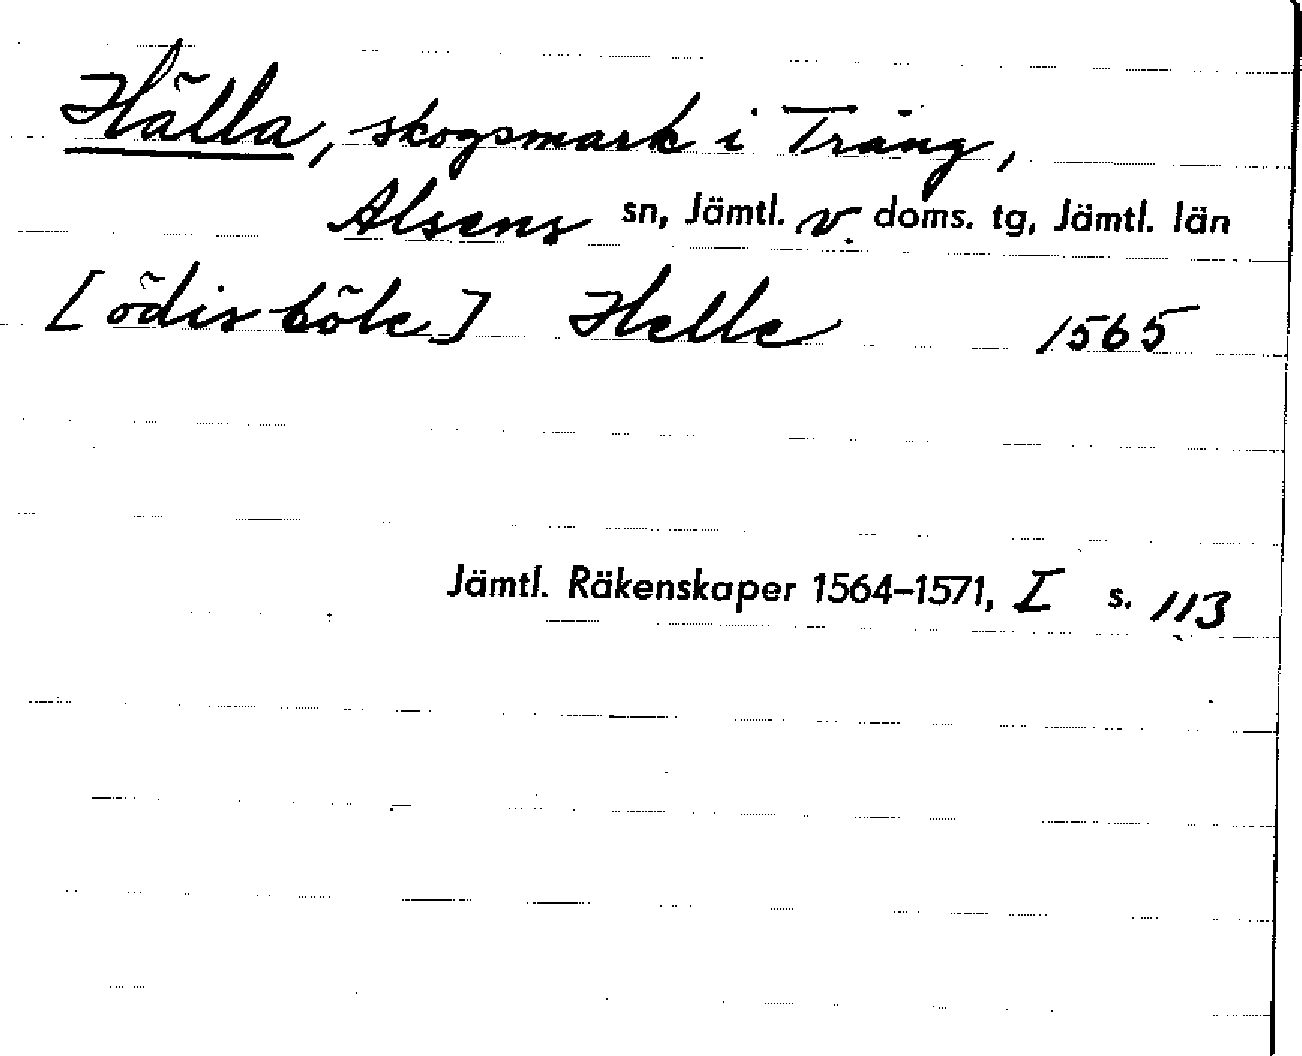 Hälla, skogsmark i Trång,
Alsens sn, Jämtl. v. doms. tg, Jämtl. län
[ödis böle] Helle 1565
Jämtl. Räkenskaper 1564–1571, I s. 113